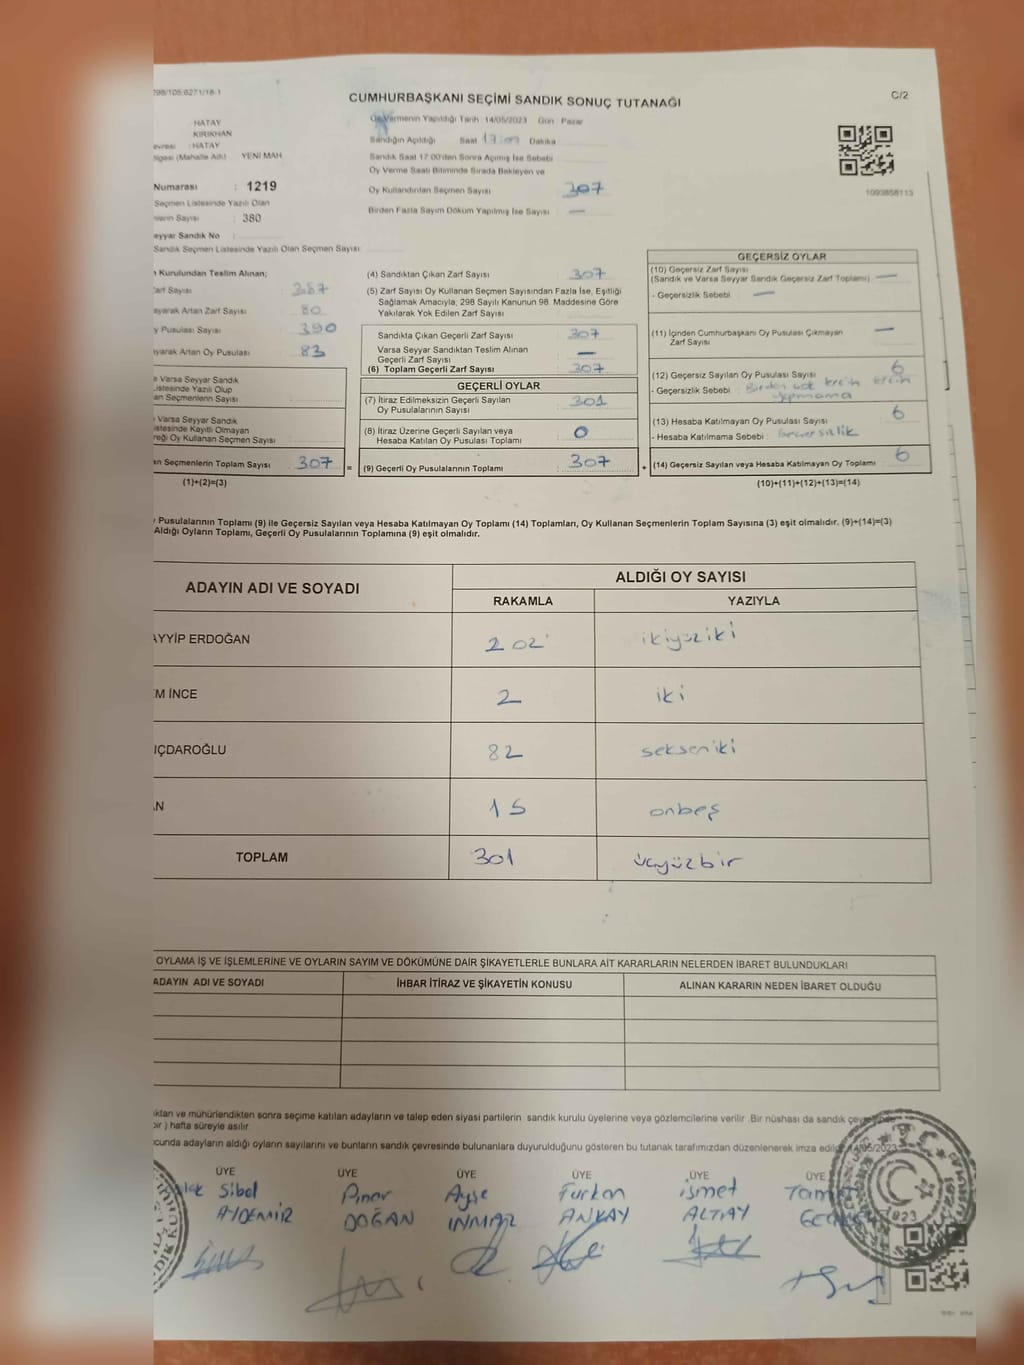 298/105.6271/18-1
CUMHURBAŞKANI SEÇİMİ SANDIK SONUÇ TUTANAĞI
C/2
HATAY
KIRIKHAN
: HATAY
(Mahalle Adı) YENİ MAH
Numarası : 1219
Seçmen Listesinde Yazılı Olan
Sayısı : 380
Seyyar Sandık No
Sandık Seçmen Listesinde Yazılı Olan Seçmen Sayısı
Oy Vermenin Yapıldığı Tarih 14/05/2023 Gün : Pazar
Sandığın Açıldığı Saat 17:00 Dakika
Sandık Saat 17:00'den Sonra Açılmış İse Sebebi
Oy Verme Saati Bitiminde Sırada Bekleyen ve
Oy Kullandırılan Seçmen Sayısı 307
Birden Fazla Sayım Döküm Yapılmış İse Sayısı —
1093858113
Kurulundan Teslim Alınan;
Zarf Sayısı : 387
Artan Zarf Sayısı : 80
Oy Pusulası Sayısı : 390
Artan Oy Pusulası : 83
Varsa Seyyar Sandık
Listesinde Yazılı Olup
Seçmenlerin Sayısı
Varsa Seyyar Sandık
Listesinde Kayıtlı Olmayan
Oy Kullanan Seçmen Sayısı
Seçmenlerin Toplam Sayısı : 307 =
(1)+(2)=(3)
(4) Sandıktan Çıkan Zarf Sayısı : 307
(5) Zarf Sayısı Oy Kullanan Seçmen Sayısından Fazla İse, Eşitliği
Sağlamak Amacıyla, 298 Sayılı Kanunun 98. Maddesine Göre
Yakılarak Yok Edilen Zarf Sayısı
Sandıkta Çıkan Geçerli Zarf Sayısı : 307
Varsa Seyyar Sandıktan Teslim Alınan
Geçerli Zarf Sayısı —
(6) Toplam Geçerli Zarf Sayısı : 307
GEÇERLİ OYLAR
(7) İtiraz Edilmeksizin Geçerli Sayılan
Oy Pusulalarının Sayısı : 301
(8) İtiraz Üzerine Geçerli Sayılan veya
Hesaba Katılan Oy Pusulası Toplamı : 0
(9) Geçerli Oy Pusulalarının Toplamı : 307 +
GEÇERSİZ OYLAR
(10) Geçersiz Zarf Sayısı
(Sandık ve Varsa Seyyar Sandık Geçersiz Zarf Toplamı) —
- Geçersizlik Sebebi : —
(11) İçinden Cumhurbaşkanı Oy Pusulası Çıkmayan
Zarf Sayısı —
(12) Geçersiz Sayılan Oy Pusulası Sayısı 6
- Geçersizlik Sebebi : Birden çok tercih tercih
yapmama
(13) Hesaba Katılmayan Oy Pusulası Sayısı 6
- Hesaba Katılmama Sebebi : Geçersizlik
(14) Geçersiz Sayılan veya Hesaba Katılmayan Oy Toplamı 6
(10)+(11)+(12)+(13)=(14)
Pusulalarının Toplamı (9) ile Geçersiz Sayılan veya Hesaba Katılmayan Oy Toplamı (14) Toplamları, Oy Kullanan Seçmenlerin Toplam Sayısına (3) eşit olmalıdır. (9)+(14)=(3)
Aldığı Oyların Toplamı, Geçerli Oy Pusulalarının Toplamına (9) eşit olmalıdır.
ADAYIN ADI VE SOYADI ALDIĞI OY SAYISI
RAKAMLA YAZIYLA
AYYİP ERDOĞAN 202 ikiyüziki
EM İNCE 2 iki
IÇDAROĞLU 82 sekseniki
AN 15 onbeş
TOPLAM 301 üçyüzbir
OYLAMA İŞ VE İŞLEMLERİNE VE OYLARIN SAYIM VE DÖKÜMÜNE DAİR ŞİKAYETLERLE BUNLARA AİT KARARLARIN NELERDEN İBARET BULUNDUKLARI
ADAYIN ADI VE SOYADI İHBAR İTİRAZ VE ŞİKAYETİN KONUSU ALINAN KARARIN NEDEN İBARET OLDUĞU
ve mühürlendikten sonra seçime katılan adayların ve talep eden siyasi partilerin sandık kurulu üyelerine veya gözlemcilerine verilir. Bir nüshası da sandık
bir ) hafta süreyle asılır.
adayların aldığı oyların sayılarını ve bunların sandık çevresinde bulunanlara duyurulduğunu gösteren bu tutanak tarafımızdan düzenlenerek imza 14/05/2023
ÜYE ÜYE ÜYE ÜYE ÜYE ÜYE
Sibel Pınar Ayşe Furkan ismet
AYDEMİR DOĞAN INMAZ ANKAY ALTAY
1923